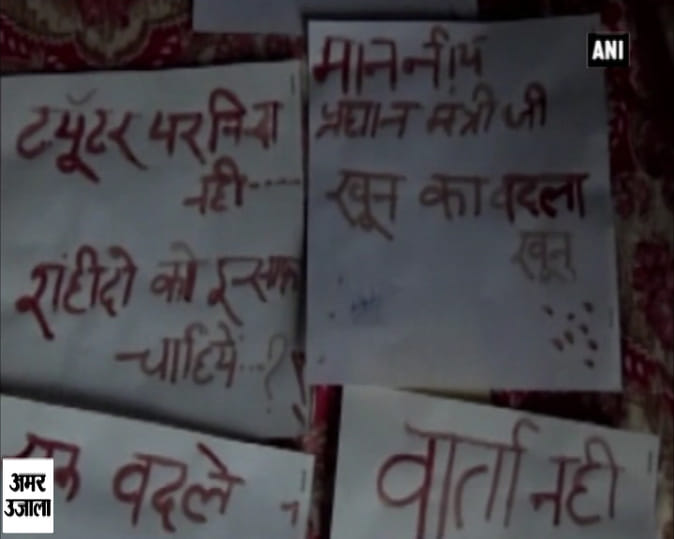 ट्यूटर पर निंदा
नही----
शहीदो को इन्साफ
चाहिये...?
माननीय
प्रधान मंत्री जी
खून का बदला
खून
बदले
वार्ता नही
ANI
अमर
उजाला